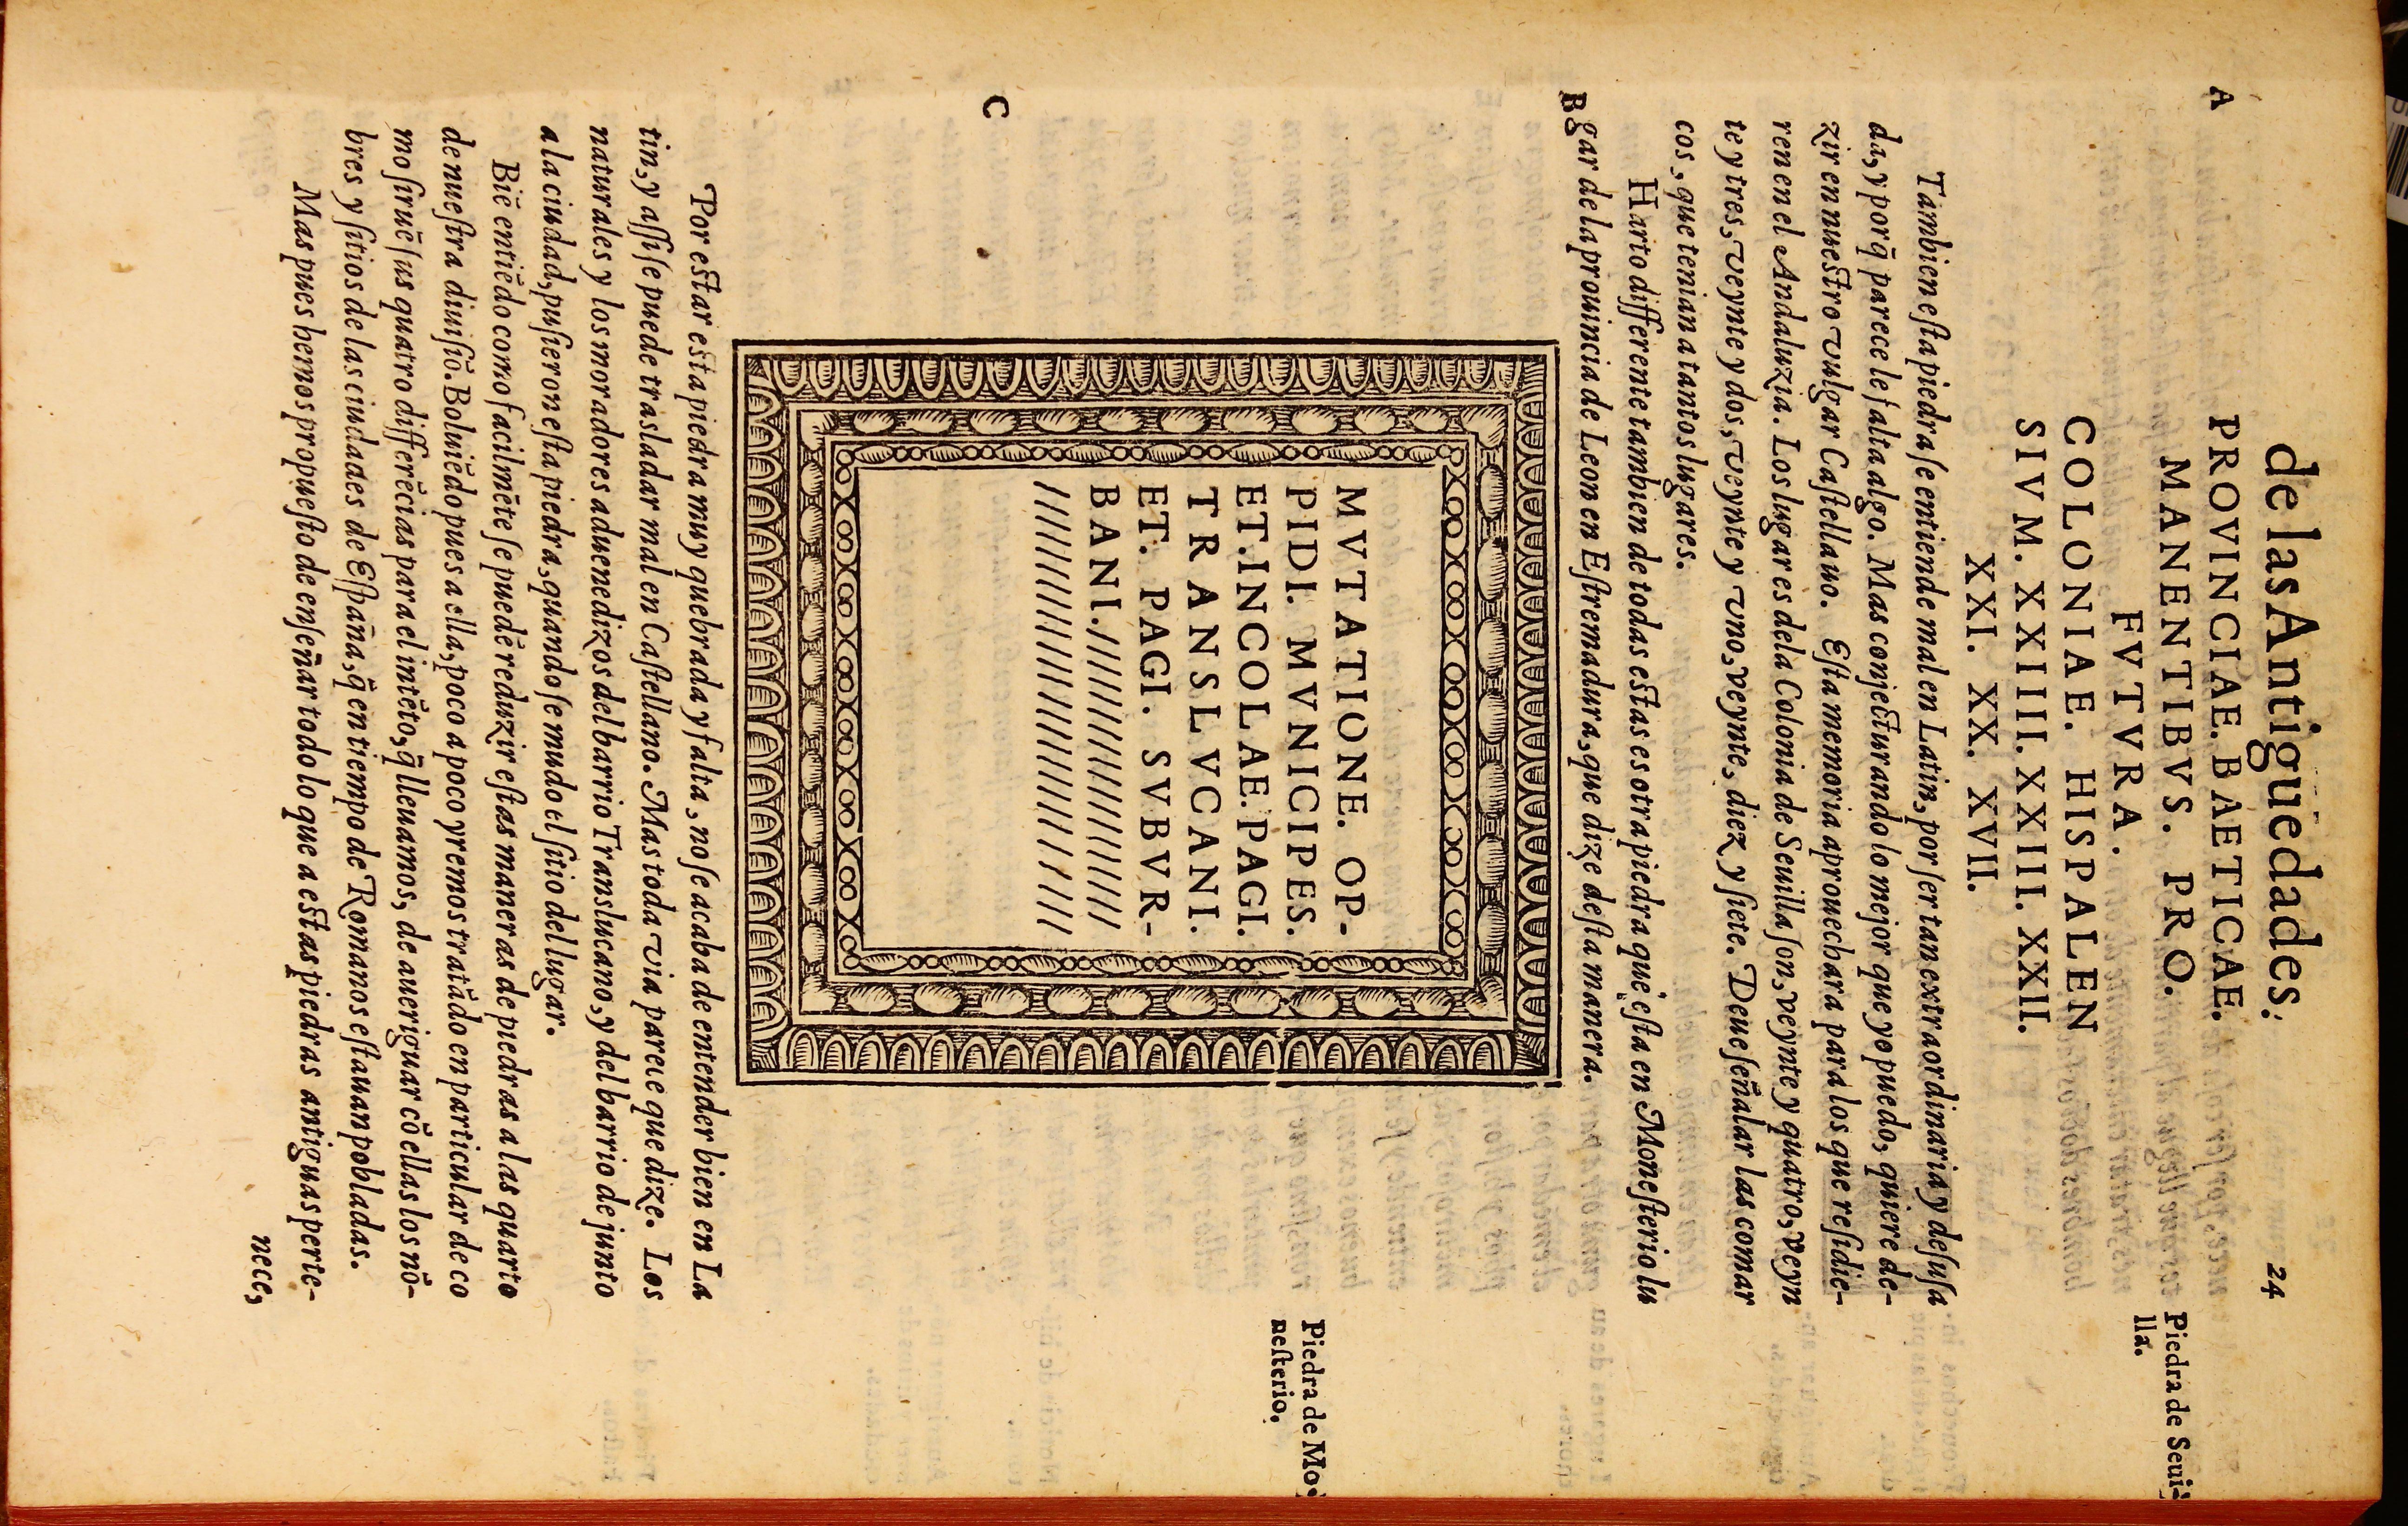 de las Antiguedades. 24
A PROVINCIAE. BAETICAE.
MANENTIBVS. PRO.
FVTVRA.
COLONIAE. HISPALEN
SIVM. XXIIII. XXIII. XXII.
XXI. XX. XVII.
Piedra de Seui-
lla.
Tambien esta piedra se entiende mal en Latin, por ser tan extraordinaria y desusa
da, y porq̃ parece le falta algo. Mas conjecturando lo mejor que yo puedo, quiere de-
zir en nuestro vulgar Castellano. Esta memoria aprouechara para los que residie-
ren en el Andaluzia. Los lugares dela Colonia de Seuilla son, veynte y quatro, veyn
te y tres, veynte y dos, veynte y vno, veynte, diez y siete. Deue señalar las comar
cos, que tenian a tantos lugares.
Harto differente tambien de todas estas es otra piedra que esta en Monesterio lu
B gar de la prouincia de Leon en Estremadura, que dize desta manera.
MVTATIONE. OP-
PIDI. MVNICIPES.
ET. INCOLAE. PAGI.
TRANSLVCANI.
ET. PAGI. SVBVR-
BANI. ////////////////////
//////////////////////////////
Piedra de Mo-
nesterio.
C
Por estar esta piedra muy quebrada y falta, no se acaba de entender bien en La
tin, y assi se puede trasladar mal en Castellano. Mas toda via parece que dize. Los
naturales y los moradores aduenedizos del barrio Translucano, y del barrio de junto
a la ciudad, pusieron esta piedra, quando se mudo el sitio del lugar.
Biẽ entiẽdo como facilmẽte se puedẽ reduzir estas maneras de piedras a las quarto
de nuestra diuisiõ. Boluiẽdo pues a ella, poco a poco yremos tratãdo en particular de co
mo siruẽ sus quatro differẽcias para el intẽto, q̃ lleuamos, de aueriguar cõ ellas los nõ-
bres y sitios de las ciudades de España, q̃ en tiempo de Romanos estauan pobladas.
Mas pues hemos propuesto de enseñar todo lo que a estas piedras antiguas perte-
nece,